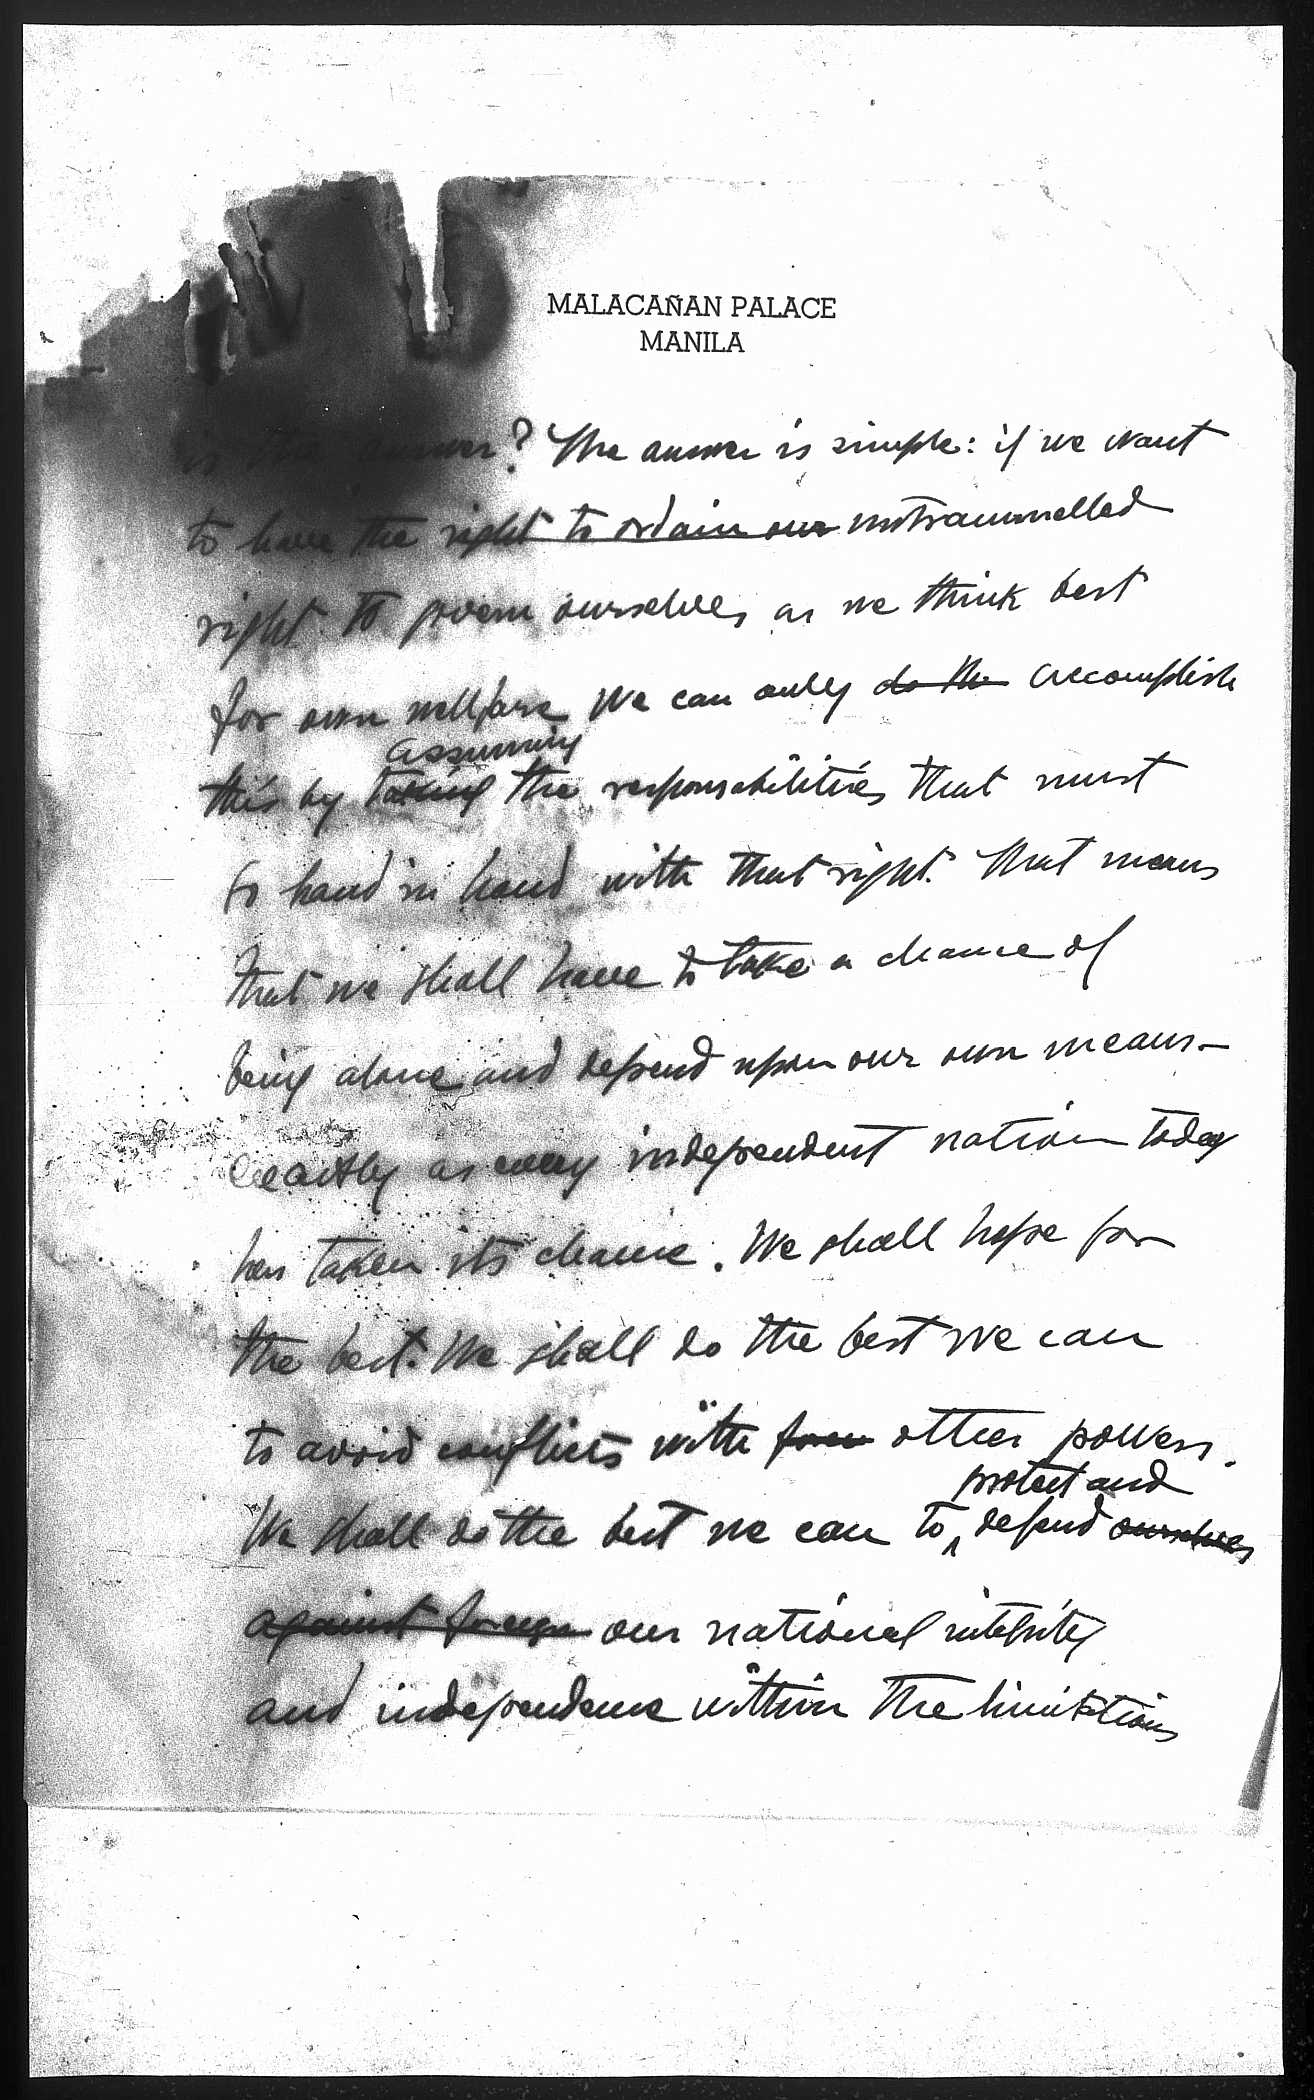 MALACAÑAN PALACE
MANILA
is the answer? The answer is simple: if we want
to have the right to ordain our untrammelled
right to govern ourselves as we think best
for own wellfare We can only do the accomplish
assuming
this by taking the responsabilities that must
go hand in hand with that right. That means
that we shall have to take a chance of
being alone and depend upon our own means—
exactly as every independent nation today
has taken its chance. We shall hope for
the best. We shall do the best we can
to avoid conflicts with other powers.
protect and
We shall do the best we can to defend ourselves
against foreign our national integrity
and independence within the limitations